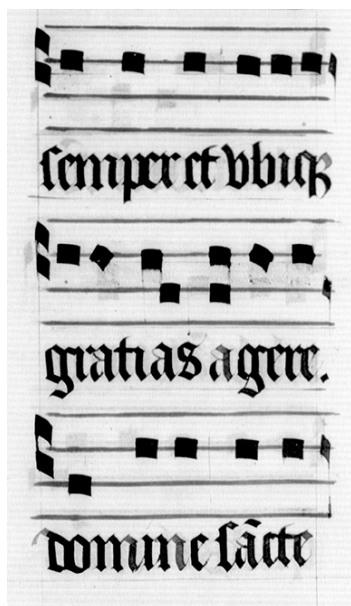 semper et vbiqꝫ
gratias agere.
domine sãcte